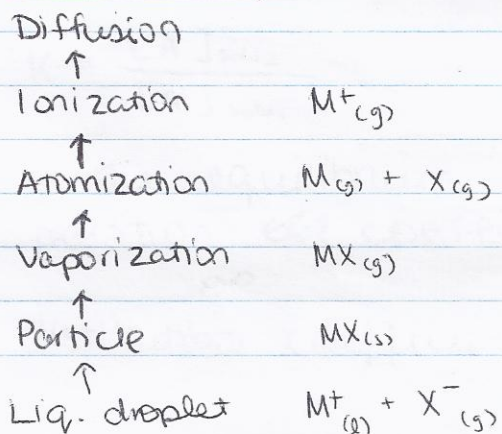 Diffusion
↑
Ionization M⁺(g)
↑
Atomization M(g) + X(g)
↑
Vaporization MX(g)
↑
Particle MX(s)
↑
Liq. droplet M⁺(l) + X⁻(g)